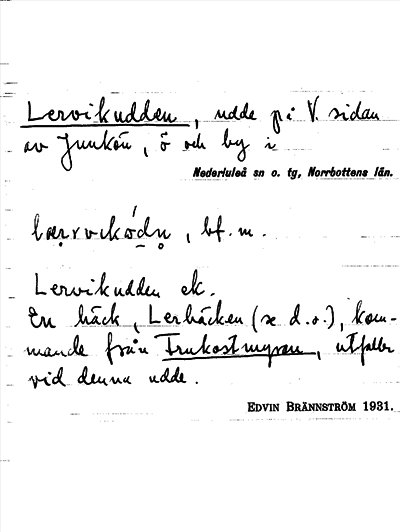 Lervikudden, udde på V. sidan
av Junkön, ö och by i
Nederluleå sn o. tg, Norrbottens län.
bf. m.
Lervikudden ek.
En bäck, Lerbäcken (se d.o.), kom-
mande från Frukostmyren, utfaller
vid denna udde.
EDVIN BRÄNNSTRÖM 1931.